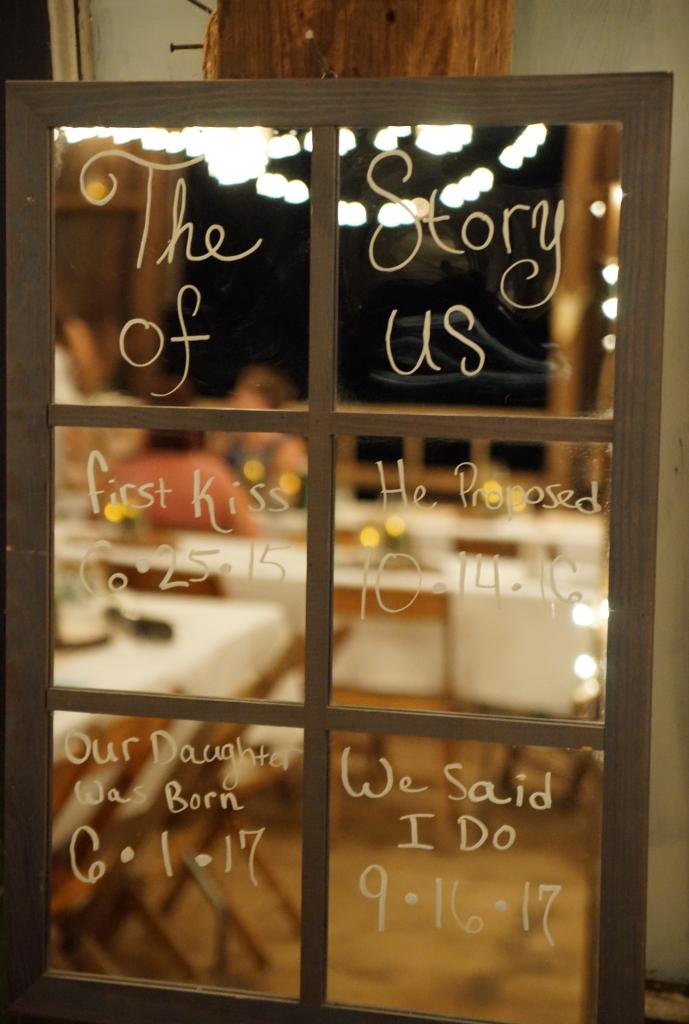 The Story
of us
First Kiss
6·25·15
He Proposed
10·14·16
Our Daughter
Was Born
6·1·17
We Said
I Do
9·16·17